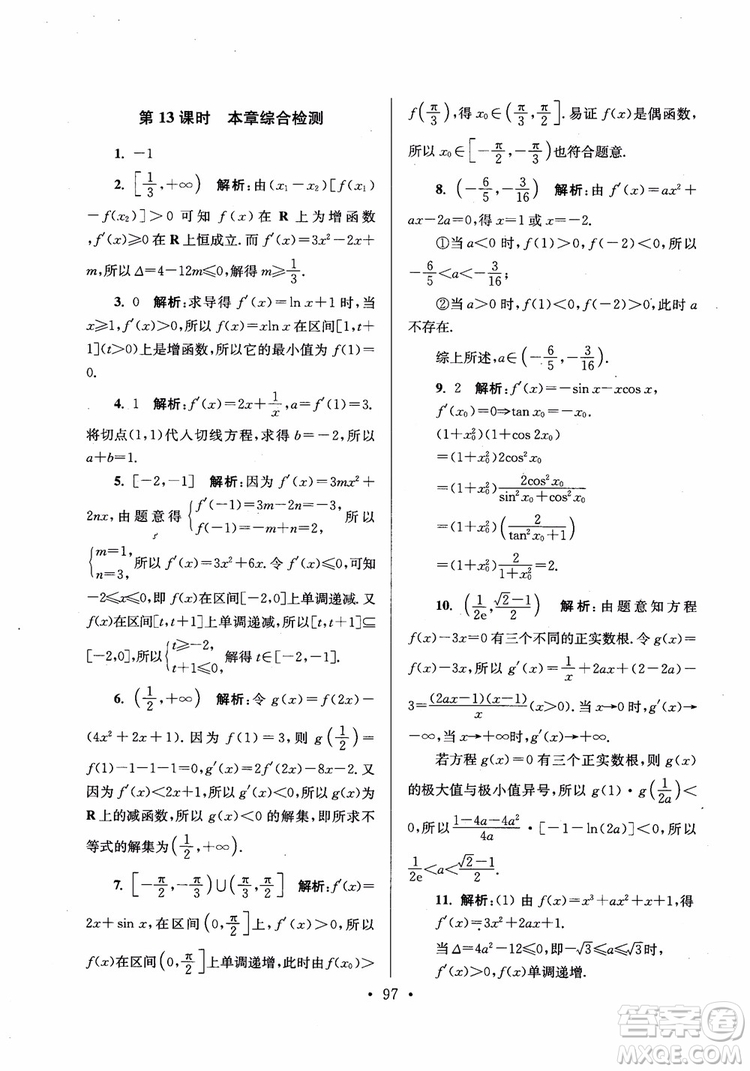 第13课时 本章综合检测
1. －1
2. [1/3,+∞) 解析:由(x₁－x₂)[f(x₁)
－f(x₂)]>0 可知 f(x)在 R 上为增函数
,f′(x)≥0 在 R 上恒成立.而 f′(x)=3x²－2x+
m,所以 Δ=4－12m≤0,解得 m≥1/3.
3. 0 解析:求导得 f′(x)=ln x+1,当
x≥1 时,f′(x)>0,所以 f(x)=xln x 在区间[1,t+
1](t>0)上是增函数,所以它的最小值为 f(1)=
0.
4. 1 解析:f′(x)=2x+1/x,a=f′(1)=3.
将切点(1,1)代人切线方程,求得 b=－2,所以
a+b=1.
5. [－2,－1] 解析:因为 f′(x)=3mx²+
2nx,由题意得{f′(－1)=3m－2n=－3, f(－1)=－m+n=2, 所以
{m=1, n=3, 所以 f′(x)=3x²+6x.令 f′(x)≤0,可知
－2≤x≤0,所以 f(x)在区间[－2,0]上单调递减.又
f(x)在区间[t,t+1]上单调递减,所以[t,t+1]⊆
[－2,0],所以{t≥－2, t+1≤0, 解得 t∈[－2,－1].
6. (1/2,+∞) 解析:令 g(x)=f(2x)－
(4x²+2x+1).因为 f(1)=3,所以 g(1/2)=
f(1)－1－1－1=0,g′(x)=2f′(2x)－8x－2.又
因为 f′(x)<2x+1,所以 g′(x)<0,所以 g(x)为
R 上的减函数,所以 g(x)<0 的解集,所以所求不
等式的解集为(1/2,+∞).
7. [－π/2,－π/3)∪(π/3,π/2] 解析:f′(x)=
2x+sin x,在区间(0,π/2]上,f′(x)>0,所以
f(x)在区间(0,π/2]上单调递增,此时由 f(x₀)>
f(π/3),得 x₀∈(π/3,π/2].易证 f(x)是偶函数,
所以 x₀∈[－π/2,－π/3)也符合题意.
8. (－6/5,－3/16) 解析:由 f′(x)=ax²+
ax－2a=0,得 x=1 或 x=－2.
①当 a<0 时,f(1)>0,f(－2)<0,所以
－6/5<a<－3/16;
②当 a>0 时,f(1)<0,f(－2)>0,此时 a
不存在.
综上所述,a∈(－6/5,－3/16).
9. 2 解析:f′(x)=－sin x－xcos x,
f′(x₀)=0⇒tan x₀=－x₀.
(1+x₀²)(1+cos 2x₀)
=(1+x₀²)2cos²x₀
=(1+x₀²)(2cos²x₀/(sin²x₀+cos²x₀))
=(1+x₀²)(2/(tan²x₀+1))
=(1+x₀²)2/(1+x₀²)=2.
10. (1/2e,(√2－1)/2) 解析:由题意知方程
f(x)－3x=0 有三个不同的正实数根.令 g(x)=
f(x)－3x,所以 g′(x)=1/x+2ax+(－2－2a)－
3=(2ax－1)(x－1)/x(x>0).当 x→0 时,g′(x)→
－∞;当 x→+∞时,g′(x)→+∞.
若方程 g(x)=0 有三个正实数根,则 g(x)
的极大值与极小值异号,所以 g(1)·g(1/2a)<
0,所以(1－4a－4a²)/4a·[－1－ln(2a)]<0,所以
1/2e<a<(√2－1)/2.
11. 解析:(1) 由 f(x)=x³+ax²+x+1,得
f′(x)=3x²+2ax+1.
当 Δ=4a²－12≤0,即－√3≤a≤√3时,
f′(x)≥0,f(x)单调递增.
· 97 ·
答案圈
MXQE.COM